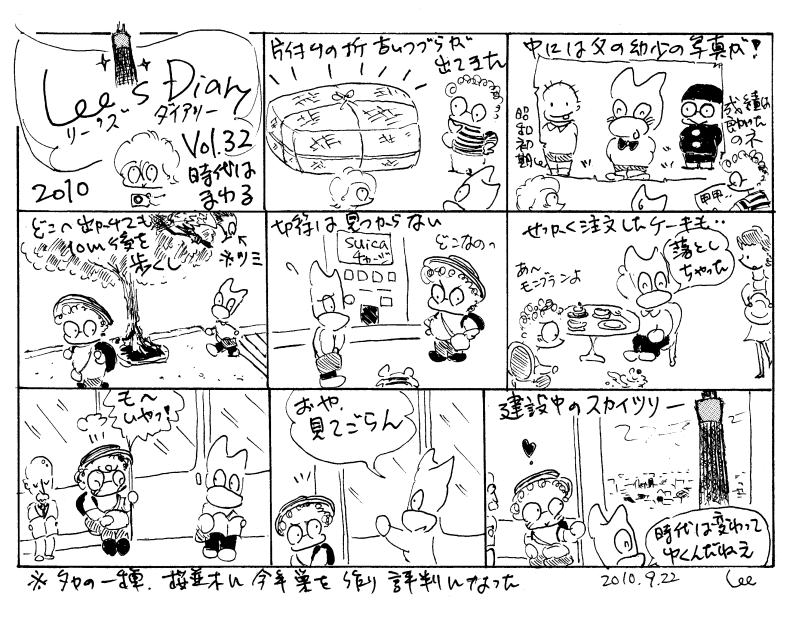 Lee's Diary
リーズ ダイアリー
Vol.32
時代は
まわる
2010
片付けの折 古いつづらが
出てきた
中には父の幼少の写真が!
昭和初期
成績は
良かった
のネ
甲甲
どこへ出かけても
10m後を
歩くし
切符は見つからない
Suica
チャージ
どこなのっ
せっかく注文したケーキも‥
あ〜
モンブランよ
落とし
ちゃった
も〜
いやっ!
おや、
見てごらん
建設中のスカイツリー
時代は変わって
ゆくんだねえ
の一種、桜並木に今年巣を作り評判になった
2010.9.22
Lee